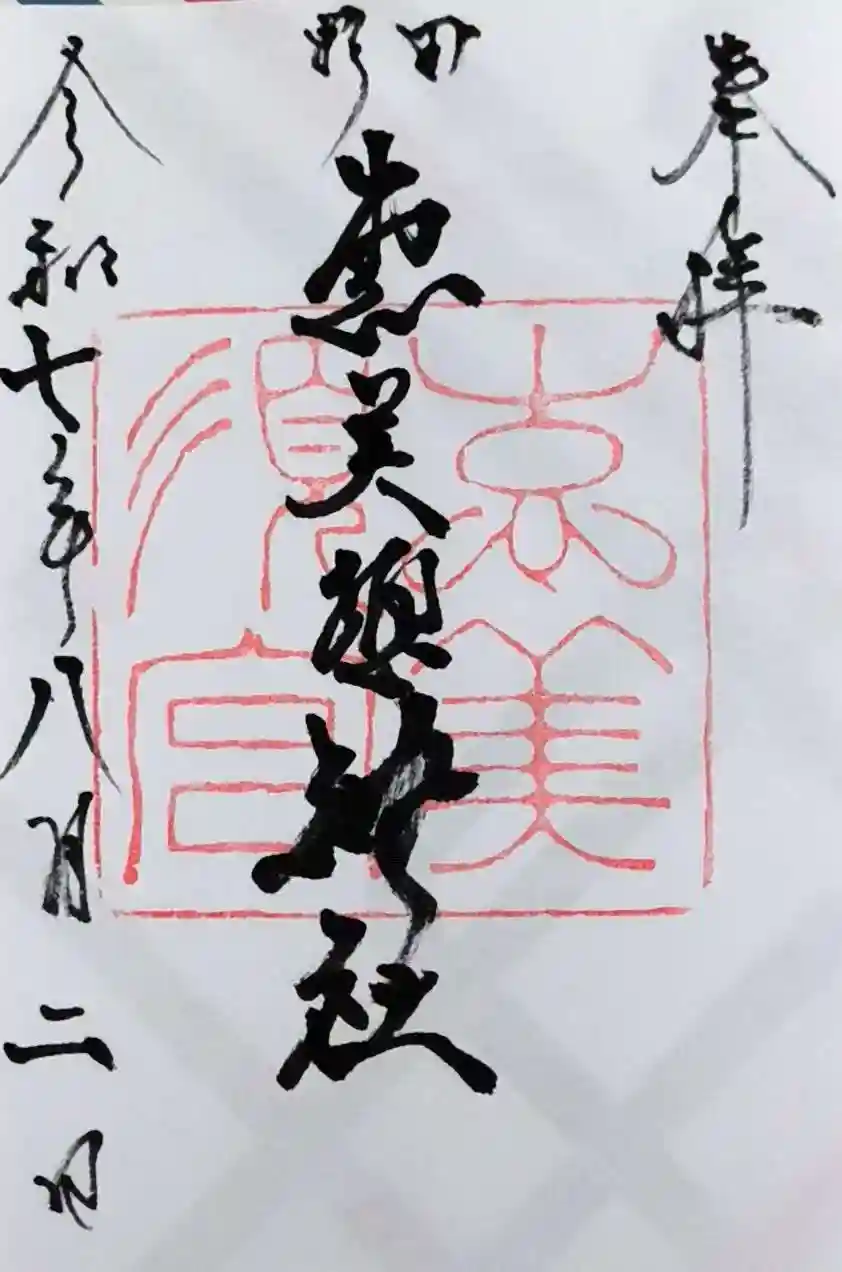 奉拝
野田
恵美須神社
恵美
須宮
令和七年八月二日